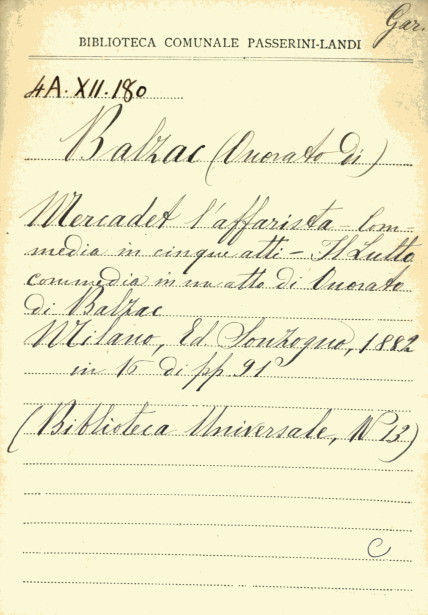 Gar.
BIBLIOTECA COMUNALE PASSERINI-LANDI
4A. XII. 180
Balzac (Onorato di)
Mercadet l'affarista - Com
media in cinque atti - Il Lutto
commedia in un atto di Onorato
di Balzac
Milano, Ed Sonzogno, 1882
in 16 di pp. 91
(Biblioteca Universale, N 13)
C